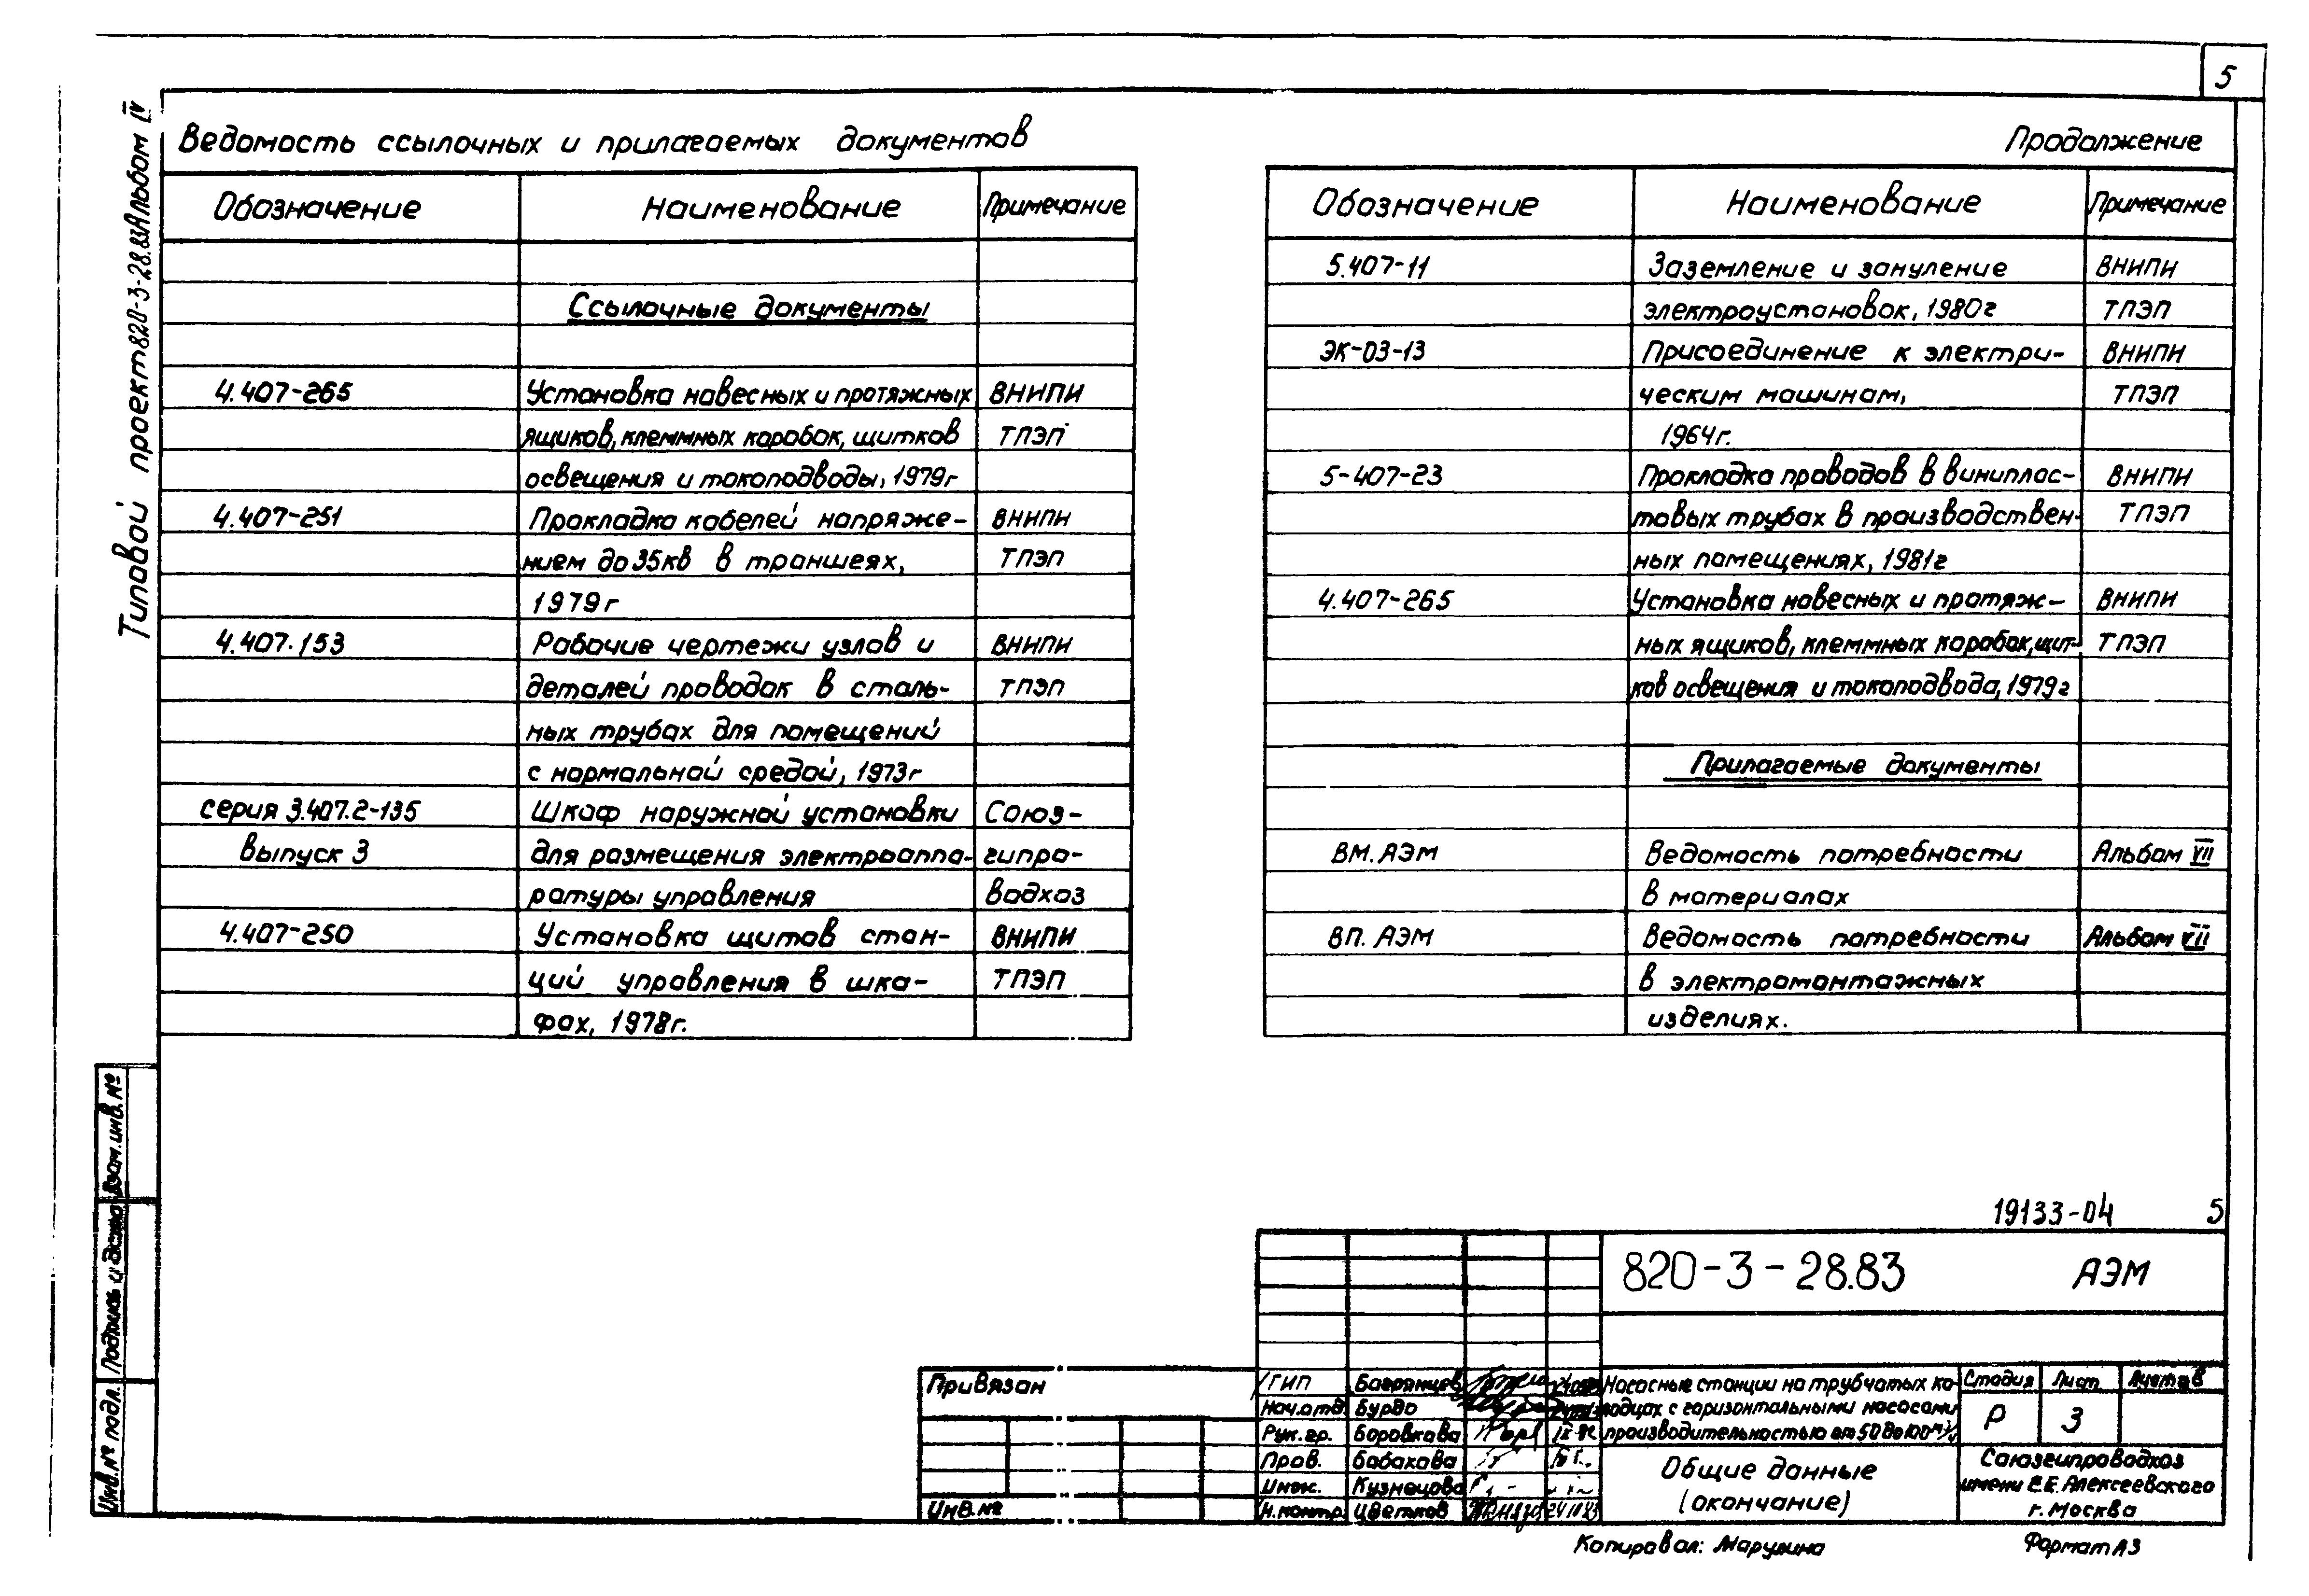 5
Типовой проект 820-3-28.83 Альбом IV
Ведомость ссылочных и прилагаемых документов
Обозначение Наименование Примечание
Ссылочные документы
4.407-265 Установка навесных и протяжных ВНИПИ
ящиков, клеммных коробок, щитков ТПЭП
освещения и токоподводы, 1979г
4.407-251 Прокладка кабелей напряже- ВНИПИ
нием до 35кв в траншеях, ТПЭП
1979г
4.407.153 Рабочие чертежи узлов и ВНИПИ
деталей проводок в сталь- ТПЭП
ных трубах для помещений
с нормальной средой, 1973г
серия 3.407.2-135 Шкаф наружной установки Союз-
выпуск 3 для размещения электроаппа- гипро-
ратуры управления водхоз
4.407-250 Установка щитов стан- ВНИПИ
ций управления в шка- ТПЭП
фах, 1978г.
Продолжение
Обозначение Наименование Примечание
5.407-11 Заземление и зануление ВНИПИ
электроустановок, 1980г ТПЭП
ЭК-03-13 Присоединение к электри- ВНИПИ
ческим машинам, ТПЭП
1964г.
5-407-23 Прокладка проводов в виниплас- ВНИПИ
товых трубах в производствен- ТПЭП
ных помещениях, 1981г
4.407-265 Установка навесных и протяж- ВНИПИ
ных ящиков, клеммных коробок, щит- ТПЭП
ков освещения и токоподвода, 1979г
Прилагаемые документы
ВМ. АЭМ Ведомость потребности Альбом VII
в материалах
ВП. АЭМ Ведомость потребности Альбом VII
в электромонтажных
изделиях.
Инв.№ подл. Подпись и дата Взам.инв.№
19133-04 5
820-3-28.83 АЭМ
Привязан
Инв.№
ГИП Багрянцев
Нач.отд. Бурдо
Рук.гр. Боровкова
Пров. Бабахова
Инж. Кузнецова
Н.контр. Цветков
Насосные станции на трубчатых ко-
лодцах с горизонтальными насосами
производительностью от 50 до 100 м³/ч
Стадия Лист Листов
Р 3
Общие данные
(окончание)
Союзгипроводхоз
имени Е.Е. Алексеевского
г. Москва
Копировал: Марулина Формат А3